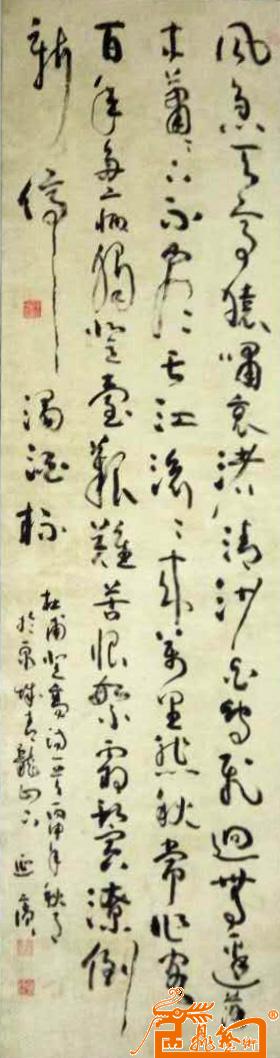 風急天高猿嘯哀渚清沙白鳥飛迴無邊落
木蕭〻下不盡長江滾〻來萬里悲秋常作客
百年多病獨登臺艱難苦恨繁霜鬢潦倒
新停濁酒杯
杜甫登高詩一首丙申年秋月
於京城青龍山下